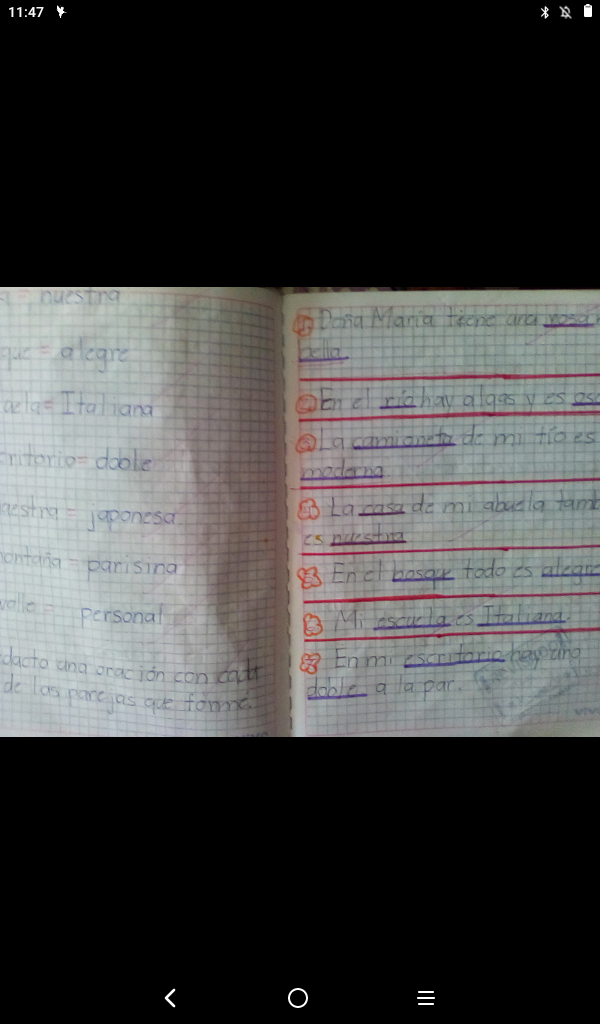 11:47
= nuestra
que = alegre
uela = Italiana
critorio = doble
aestra = japonesa
montaña = parisina
valle = personal
dacto una oración con cada
de las parejas que formé.
1 Doña María tiene una rosa
bella.
2 En el río hay algas y es
3 La camioneta de mi tío es
moderna
4 La casa de mi abuela tamb
es nuestra
5 En el bosque todo es alegre
6 Mi escuela es Italiana
7 En mi escritorio hay uno
doble a la par.